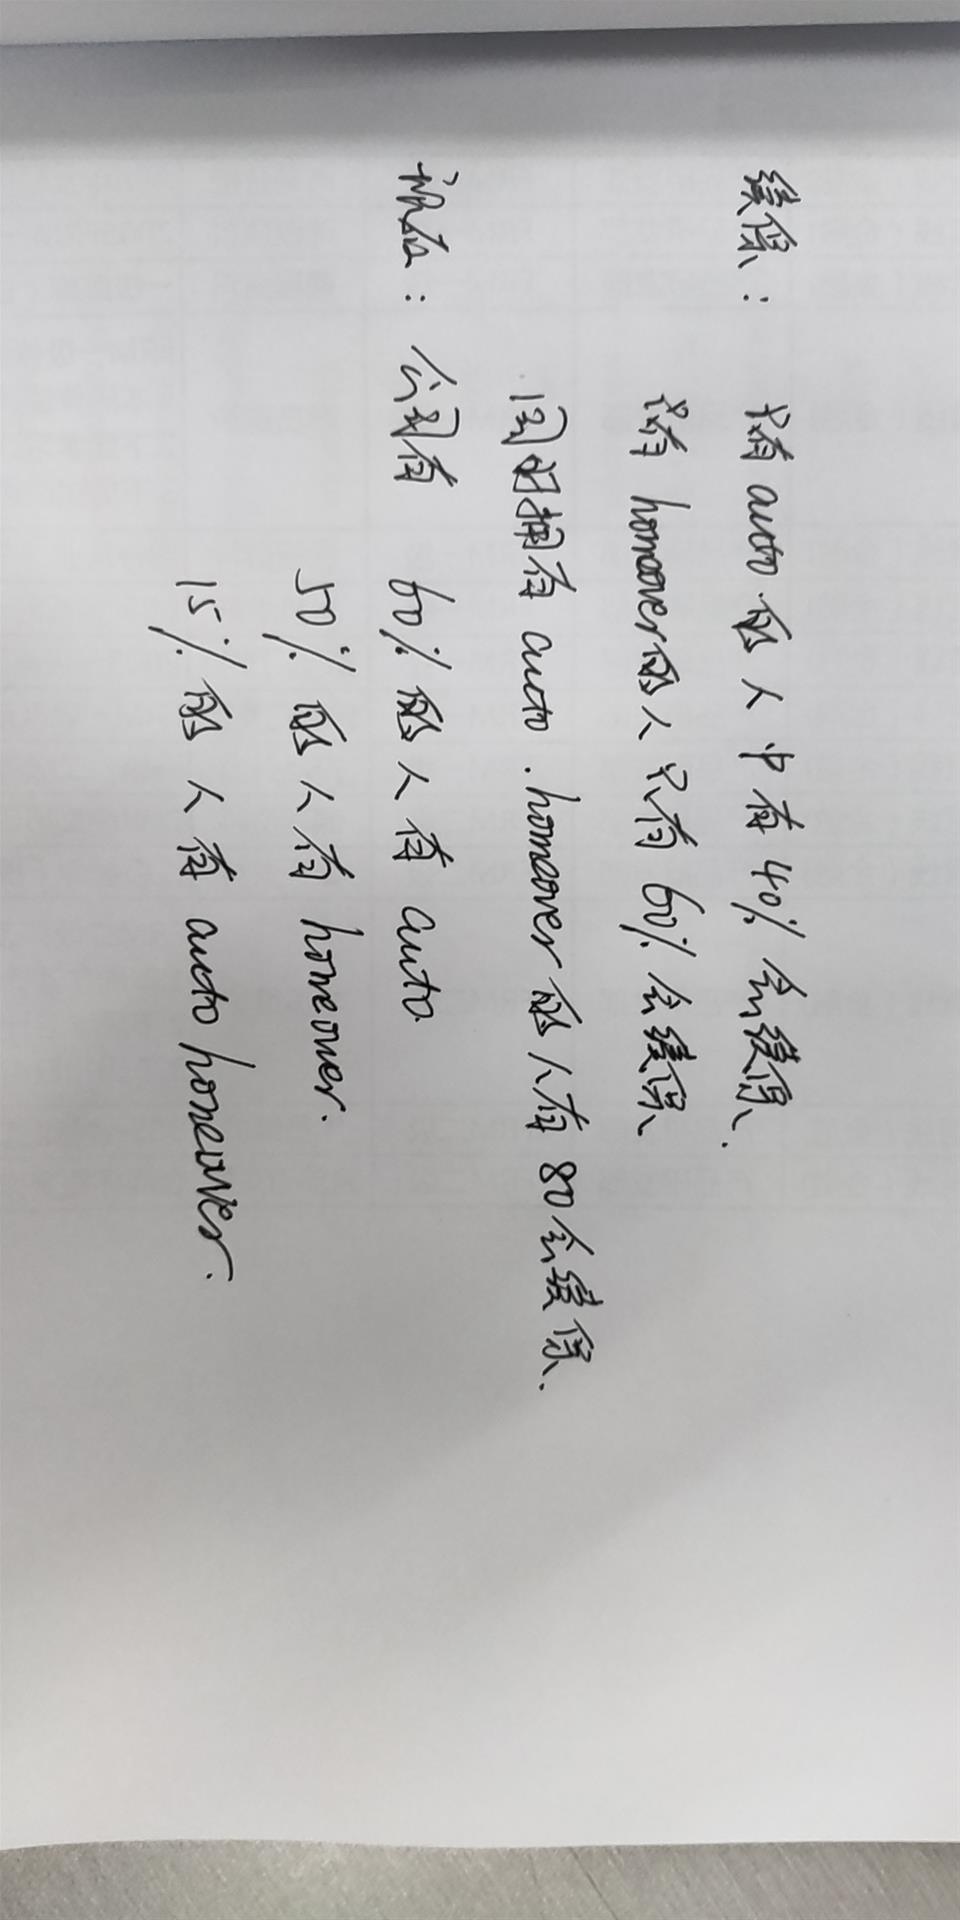 续保：
只有 auto 的人中有40%会续保.
只有 homeover的人只有60%会续保
同时拥有 auto . homeover的人有80会续保.
现在：公司有 60%的人有 auto.
50%的人有 homeowner.
15%的人有 auto homeowner.